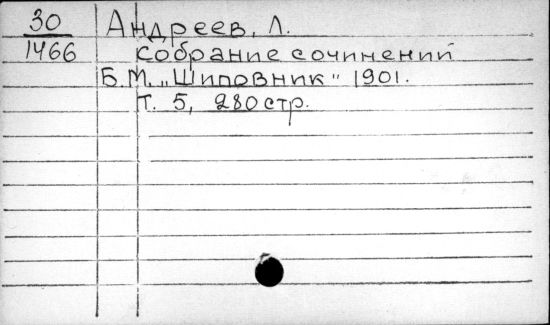 30 Андреев, Л.
1466 собрание сочинений
Б.М. „Шиповник" 1901.
Т. 5, 280 стр.